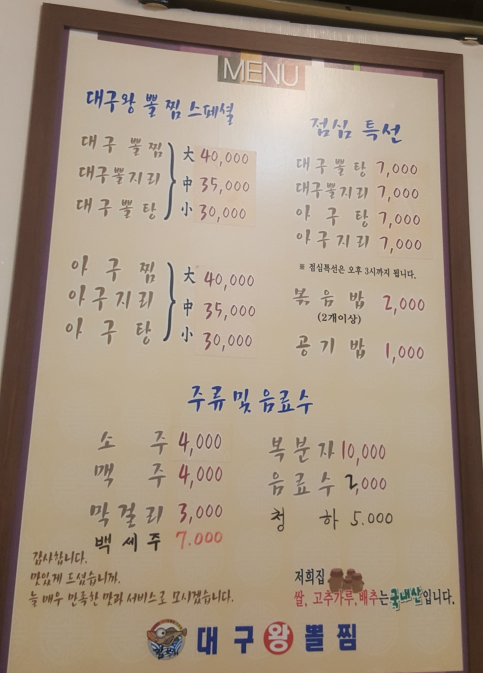 MENU
대구왕 뽈찜 스페셜
대구 뽈찜 大 40,000
대구뽈지리 中 35,000
대구 뽈탕 小 30,000
아구찜 大 40,000
아구지리 中 35,000
아구탕 小 30,000
점심 특선
대구뽈탕 7,000
대구뽈지리 7,000
아구탕 7,000
아구지리 7,000
※ 점심특선은 오후 3시까지 됩니다.
볶음밥 2,000
(2개이상)
공기밥 1,000
주류 및 음료수
소주 4,000
맥주 4,000
막걸리 3,000
백세주 7.000
복분자 10,000
음료수 2,000
청하 5.000
감사합니다.
맛있게 드셨습니까.
늘 매우 만족한 맛과 서비스로 모시겠습니다.
저희집
쌀, 고추가루, 배추는 국내산입니다.
대구왕뽈찜